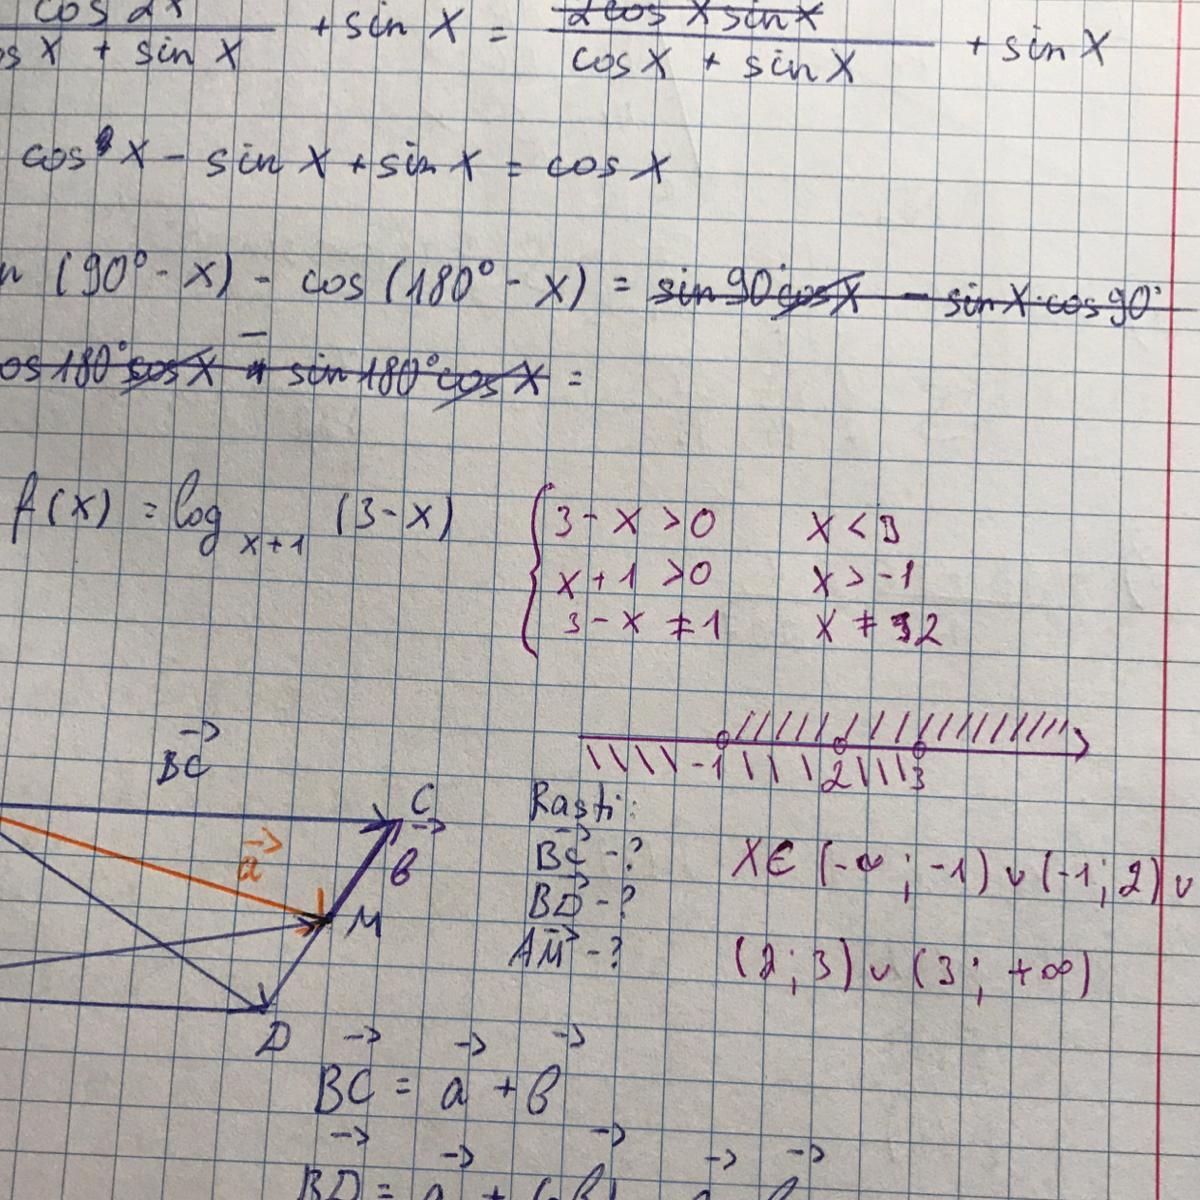 cos 2x
cos x + sin x + sin x = 2cos x sin x
cos x + sin x + sin x
cos x - sin x + sin x = cos x
(90° - x) - cos (180° - x) = sin 90° cos x - sin x · cos 90°
cos 180° cos x - sin 180° cos x =
f(x) = log x+1 (3-x)
3 - x > 0 x < 3
x + 1 > 0 x > -1
3 - x ≠ 1 x ≠ 2
-1 2 3
BC
C
Rasti:
a
b
BC - ?
x ∈ (-∞; -1) ∪ (-1; 2) ∪
BD - ?
M
AM - ?
(2; 3) ∪ (3; +∞)
D
BC = a + b
BD = a +